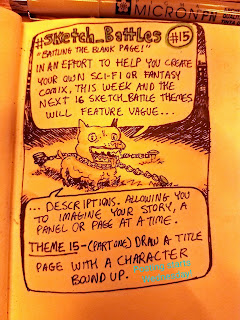 MICRON PN
#SKETCH_BATTLES #15
"BATTLING THE BLANK PAGE!"
IN AN EFFORT TO HELP YOU CREATE
YOUR OWN SCI-FI OR FANTASY
COMIX, THIS WEEK AND THE
NEXT 16 SKETCH_BATLE THEMES
WILL FEATURE VAGUE...
... DESCRIPTIONS. ALLOWING YOU
TO IMAGINE YOUR STORY, A
PANEL OR PAGE AT A TIME.
THEME 15- (PART ONE) DRAW A TITLE
PAGE WITH A CHARACTER
BOUND UP.